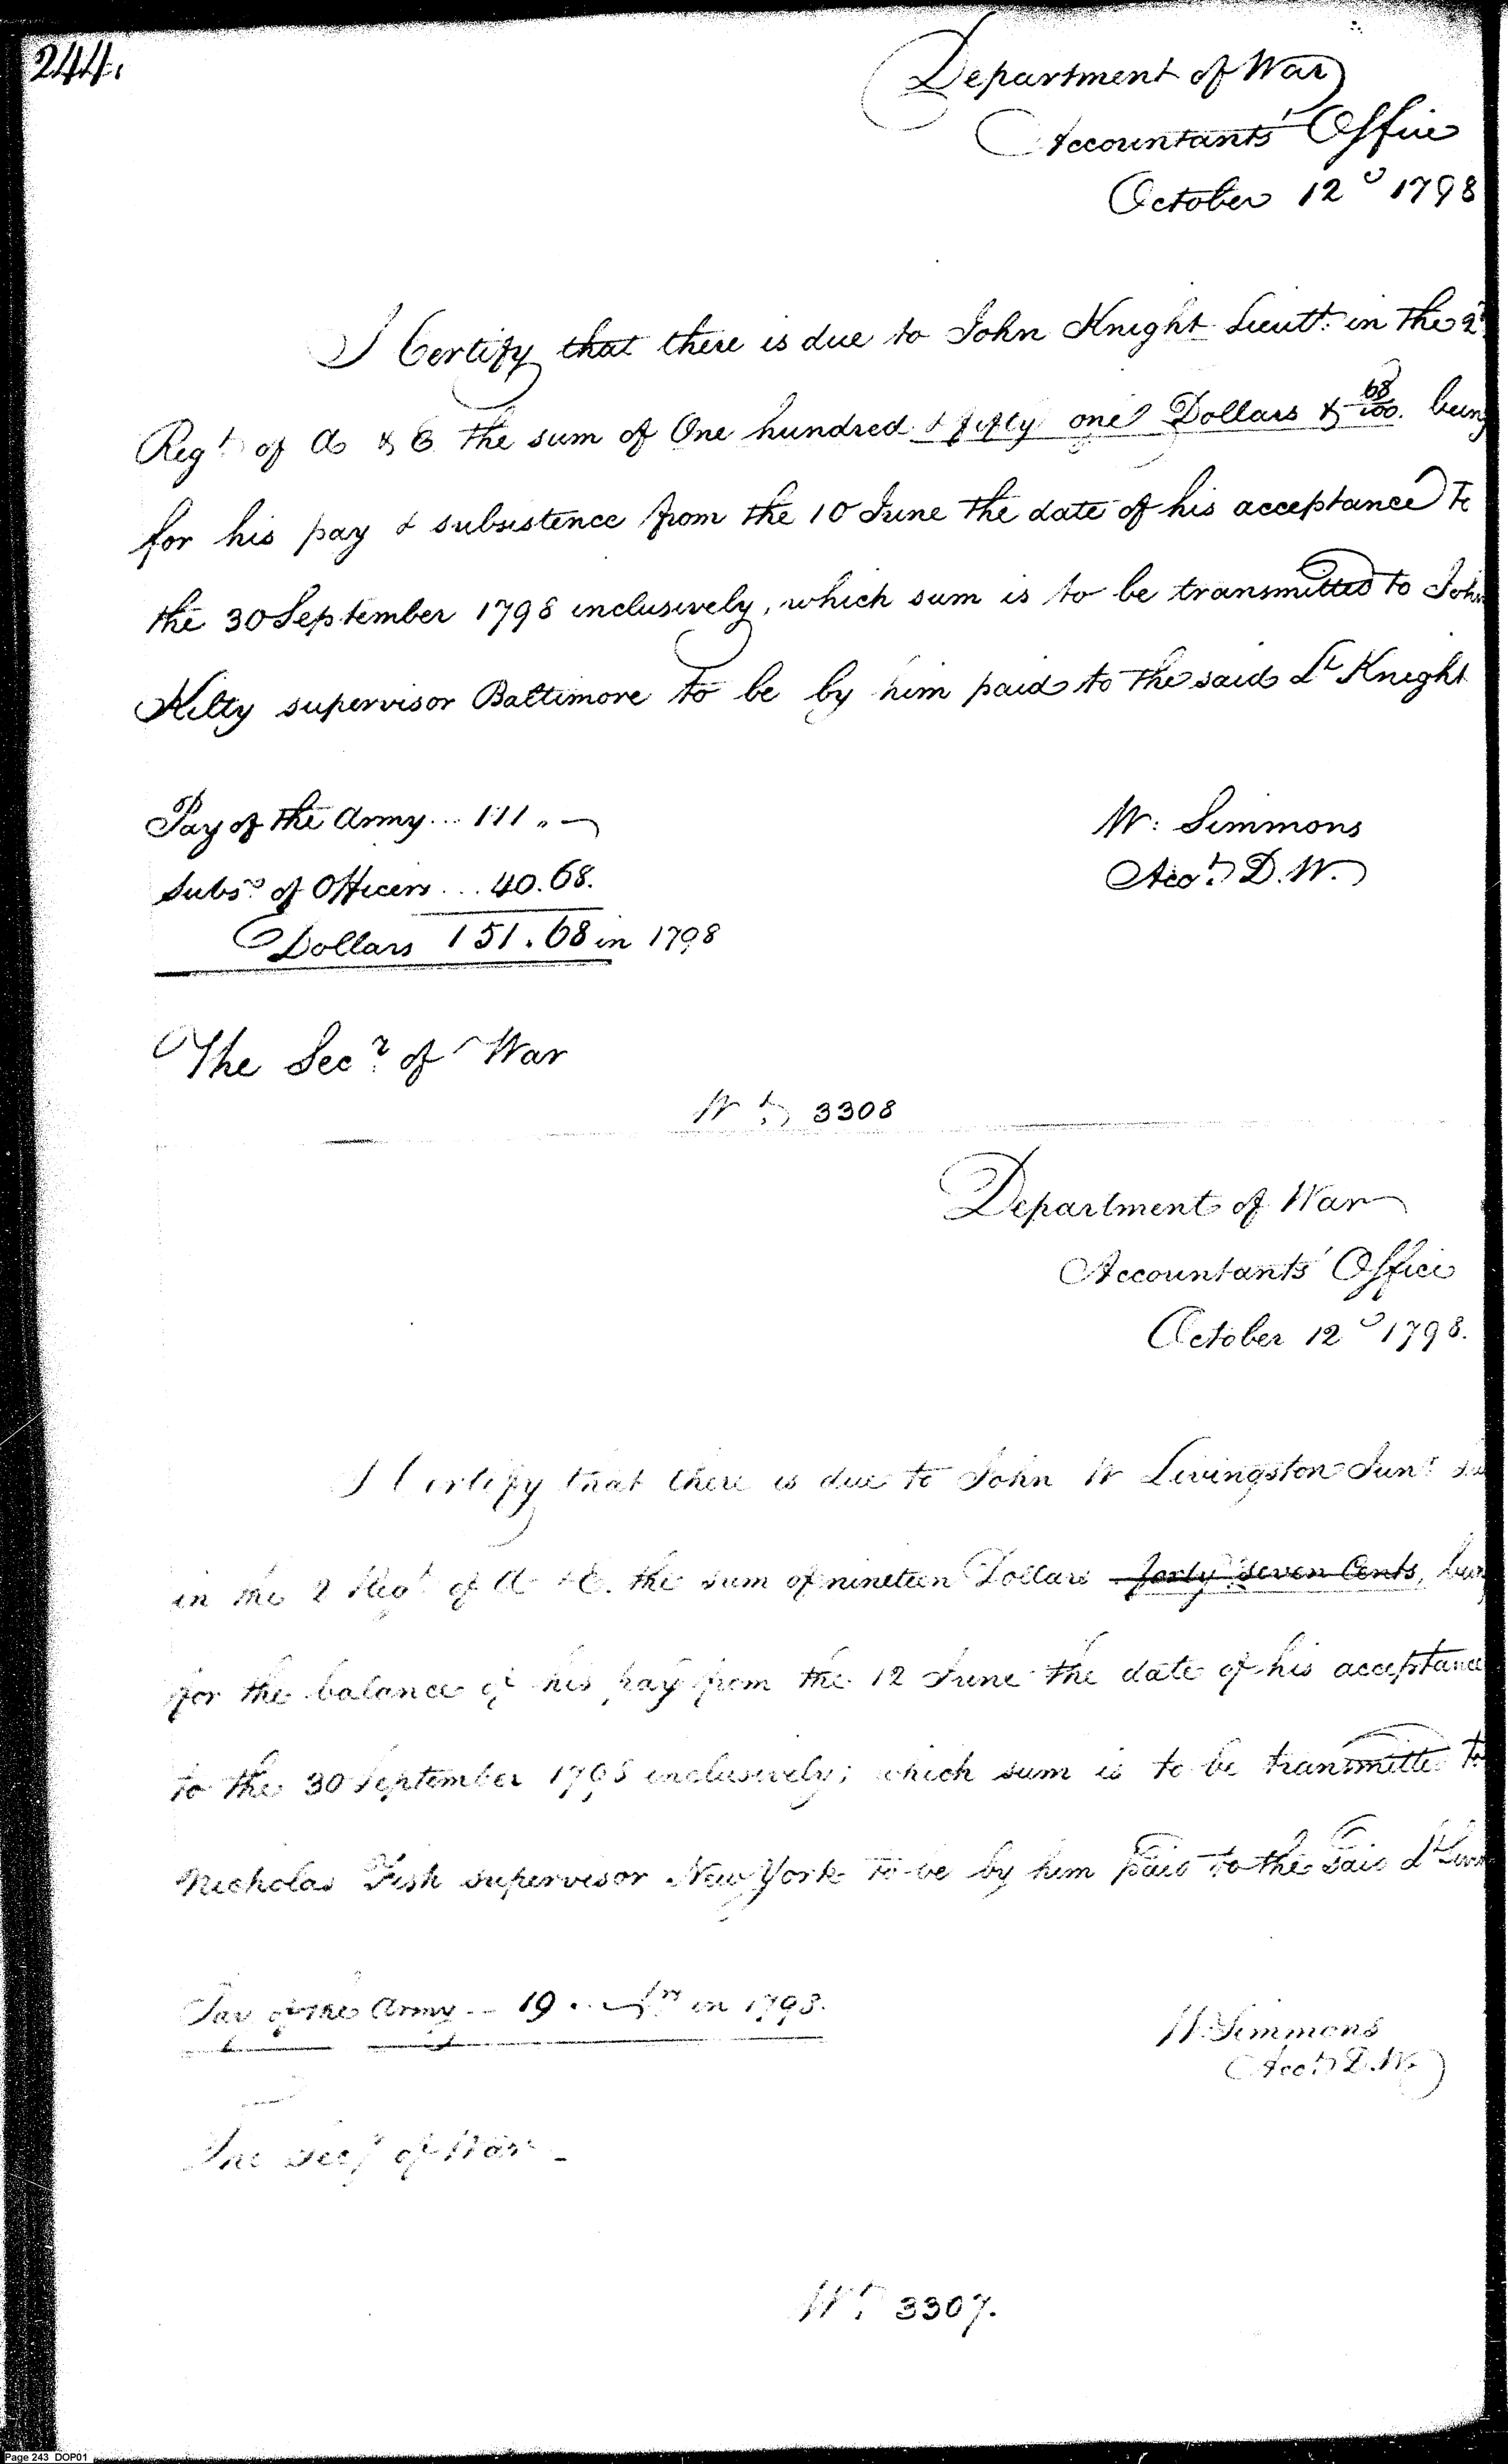 244.
Department of War
Accountants' Office
October 12th 1798
I Certify that there is due to John Knight Lieutt. in the 2d
Regt of A & E the sum of One hundred & fifty one Dollars & 68/100. being
for his pay & subsistence from the 10 June the date of his acceptance to
the 30 September 1798 inclusively, which sum is to be transmitted to John
Kilty supervisor Baltimore to be by him paid to the said Lt Knight
Pay of the Army... 111 „ —
W: Simmons
Subs. of Officers... 40.68.
Acct. D.W.
Dollars 151.68 in 1798
The Secy. of War
Wt. 3308
Department of War
Accountants' Office
October 12th 1798.
I Certify that there is due to John W Livingston Junr
in the 2 Regt of A & E. the sum of nineteen Dollars forty seven Cents, being
for the balance of his pay from the 12 June the date of his acceptance
to the 30 September 1798 inclusively; which sum is to be transmitted to
Nicholas Fish supervisor New York to be by him paid to the said Lt
Pay of the Army -- 19 .. — in 1798.
W. Simmons
Acct. D.W.
The Secy of War
Wt. 3307.
Page 243 DOP01